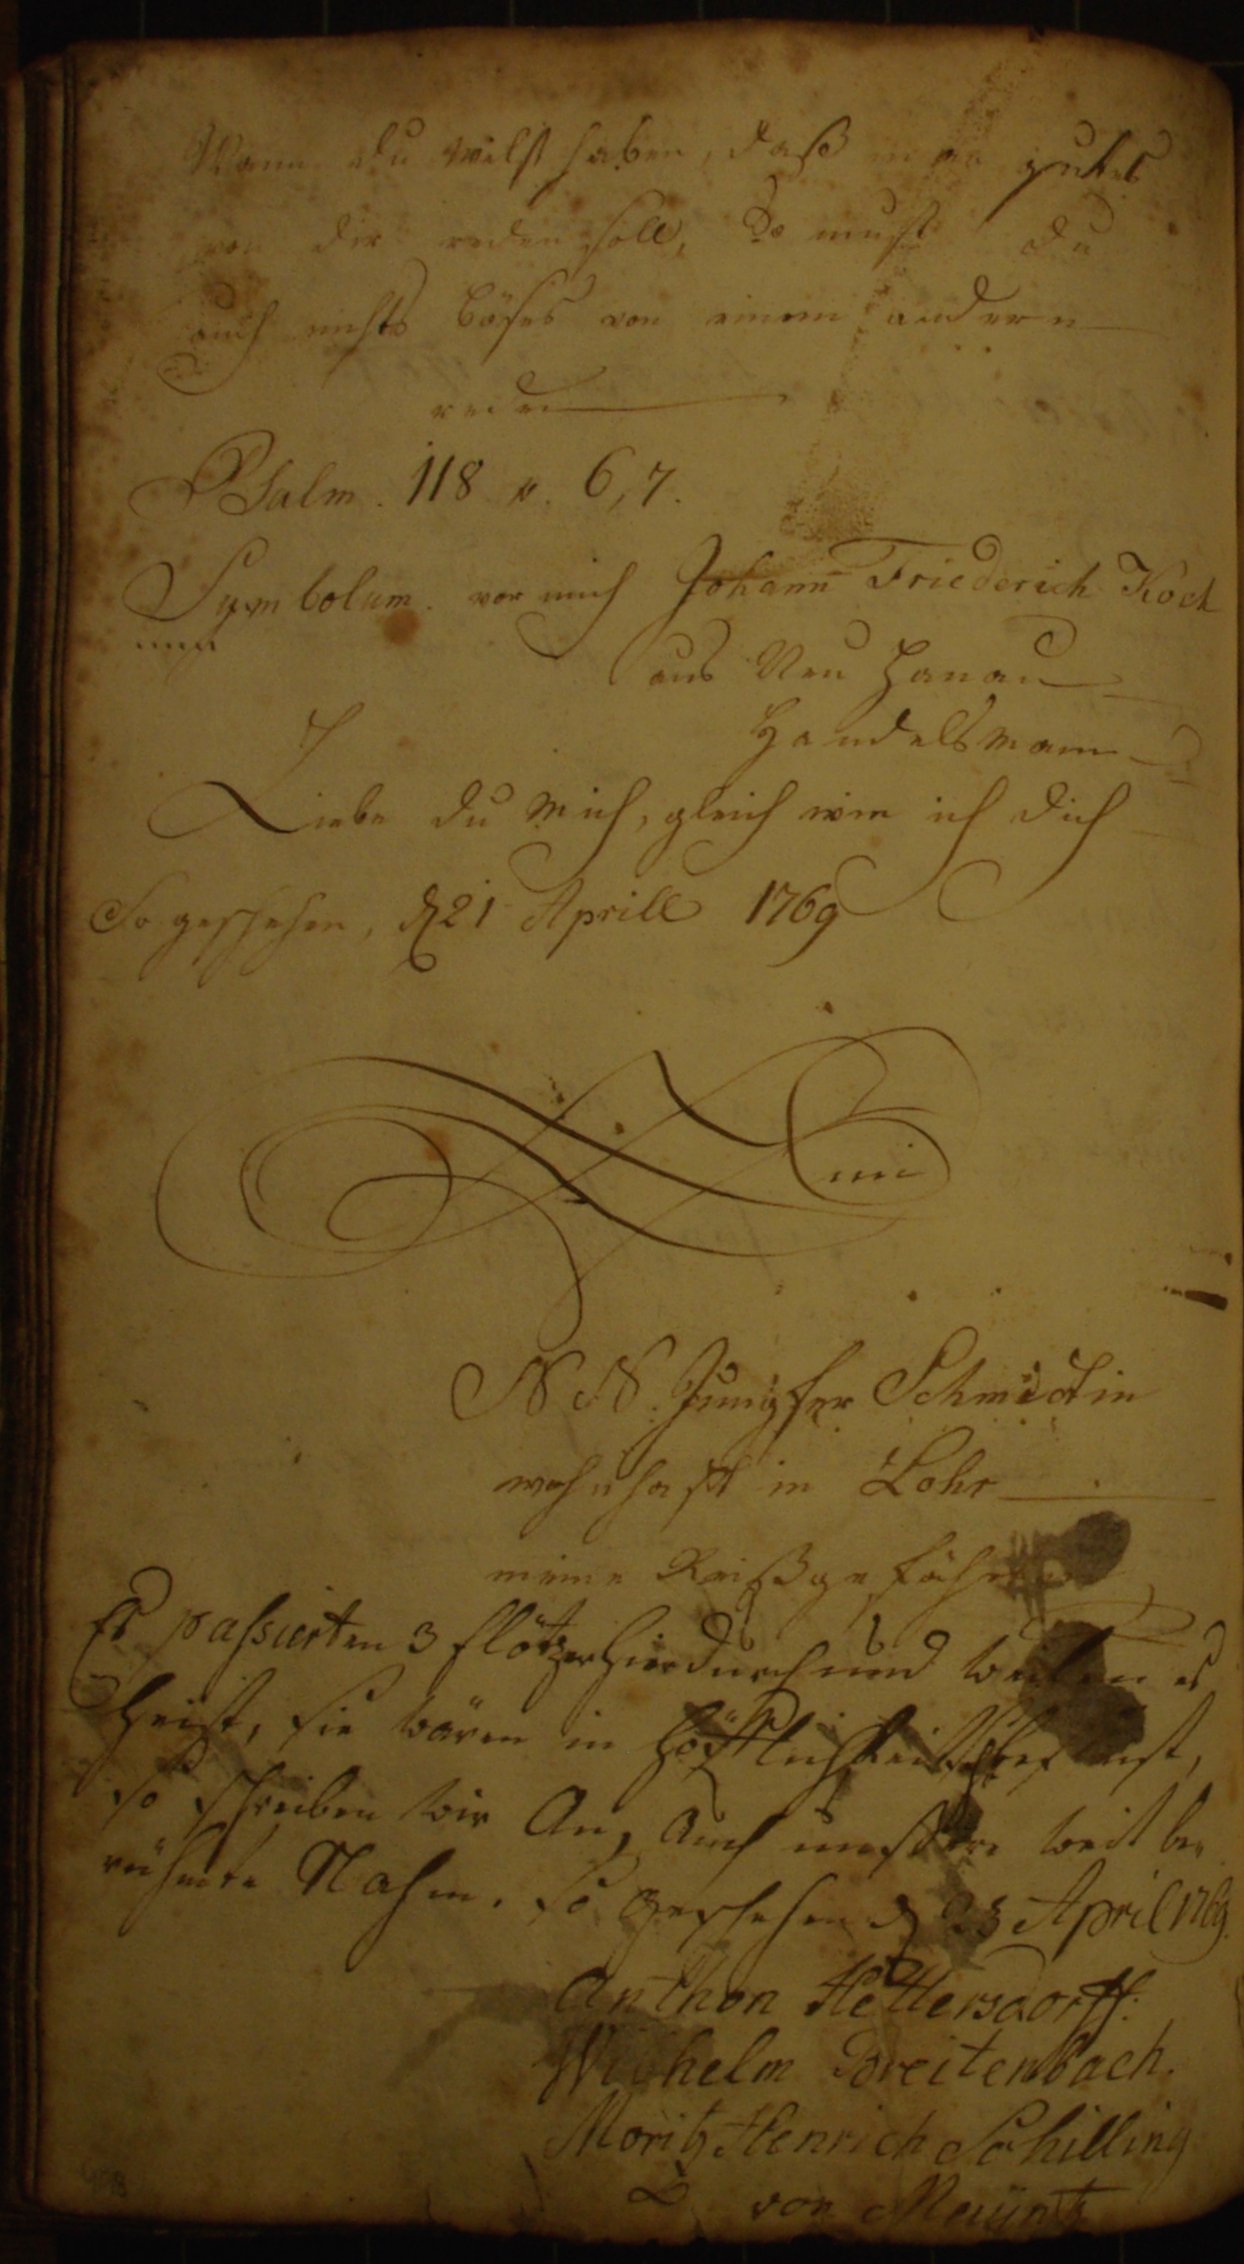 Wann du wilst haben, daß man gutes
von dir reden soll, So must du
auch nichts böses von einem andern
reden
Psalm. 118 v. 6, 7.
Symbolum. vor mich Johann Friederich Koch
aus Neu Hanau
Handelsmann
Liebe du mich, gleich wie ich dich
So geschehen, d 21 Aprill 1769
N N. Jungfer Schmidtin
wohnhafft in Lohr
meine Reißgefährtin
Es passierten 3 flötzer hierdurch und weilen es
heist, sie wären in Höfflichkeit
so schreiben wir An, Auch unssere weit be,
rühmte Nahm. so geschehen d 23 April 1769.
Anthon Hettersdorff.
Wilhelm Breitenbach.
Moritz Henrich Schilling
von Mayntz